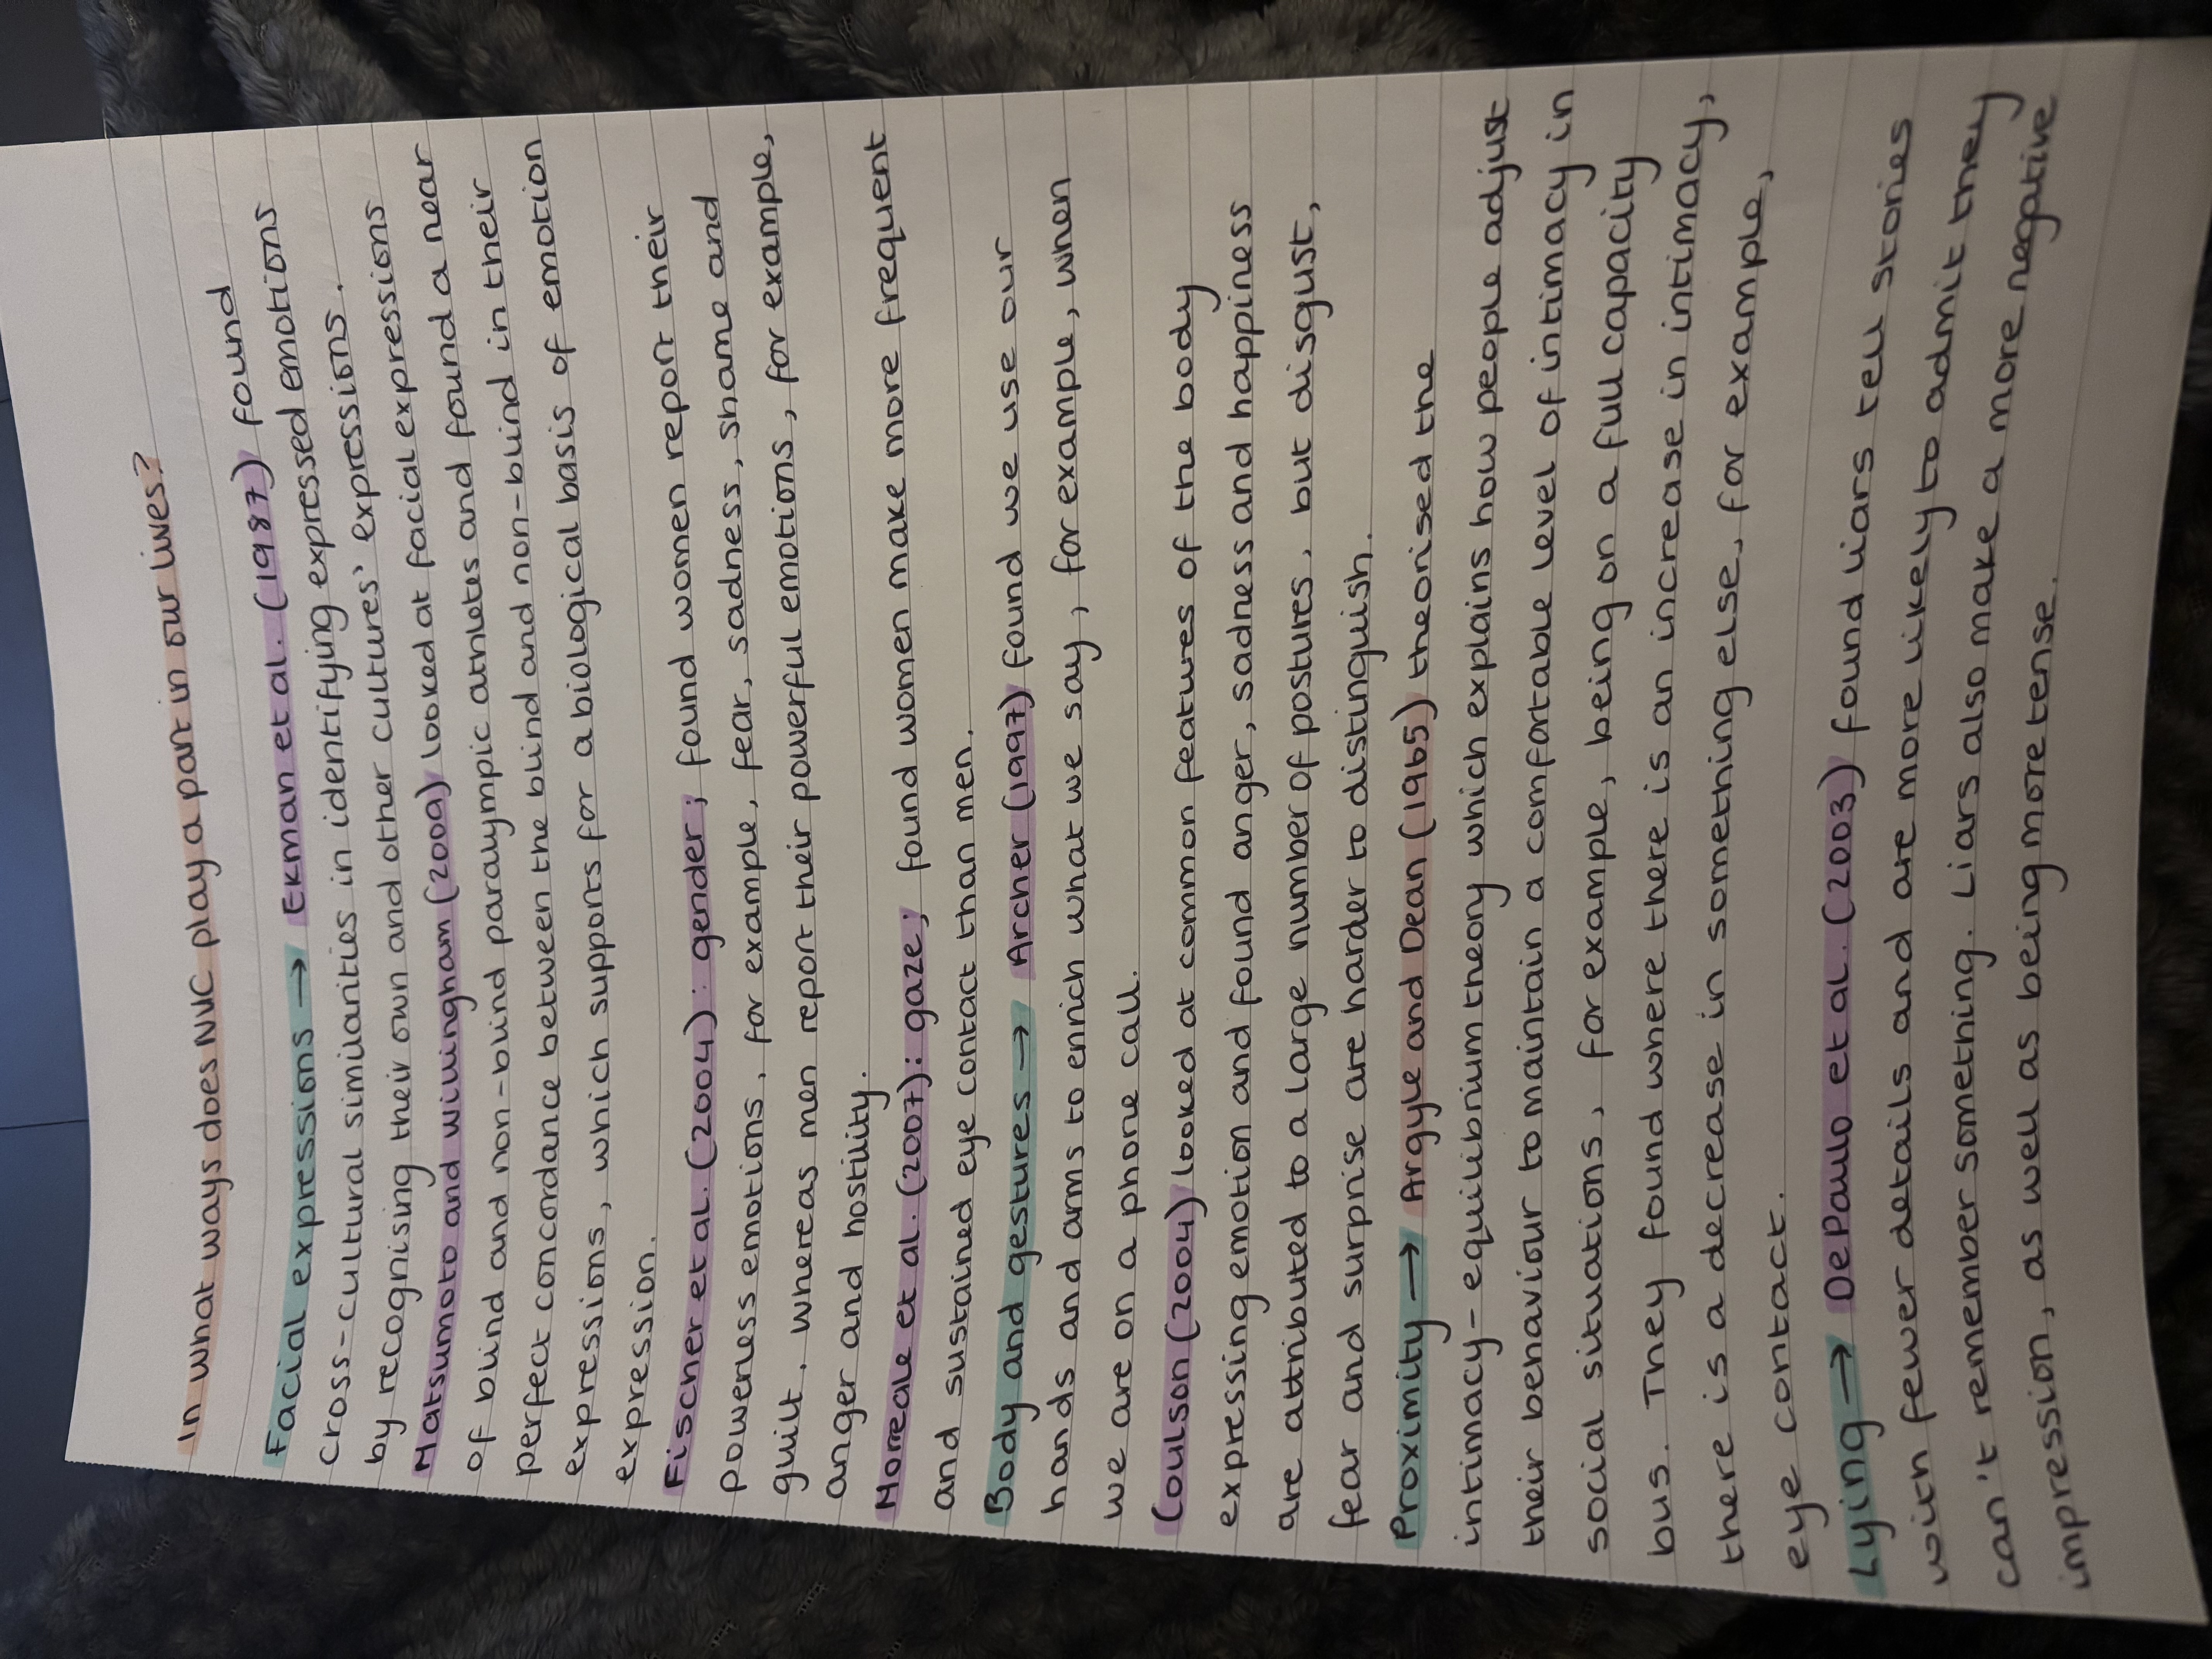 In what ways does NVC play a part in our lives?
Facial expressions → Ekman et al. (1987) found
cross-cultural similarities in identifying expressed emotions
by recognising their own and other cultures' expressions.
Matsumoto and Willingham (2009) looked at facial expressions
of blind and non-blind paralympic athletes and found a near
perfect concordance between the blind and non-blind in their
expressions, which supports for a biological basis of emotion
expression.
Fischer et al. (2004): gender; found women report their
powerless emotions, for example, fear, sadness, shame and
guilt. whereas men report their powerful emotions, for example,
anger and hostility.
Morreale et al. (2007): gaze; found women make more frequent
and sustained eye contact than men.
Body and gestures → Archer (1997) found we use our
hands and arms to enrich what we say, for example, when
we are on a phone call.
Coulson (2004) looked at common features of the body
expressing emotion and found anger, sadness and happiness
are attributed to a large number of postures, but disgust,
fear and surprise are harder to distinguish.
Proximity → Argyle and Dean (1965) theorised the
intimacy-equilibrium theory which explains how people adjust
their behaviour to maintain a comfortable level of intimacy in
social situations, for example, being on a full capacity
bus. They found where there is an increase in intimacy,
there is a decrease in something else, for example,
eye contact.
Lying → DePaulo et al. (2003) found liars tell stories
with fewer details and are more likely to admit they
can't remember something. Liars also make a more negative
impression, as well as being more tense.